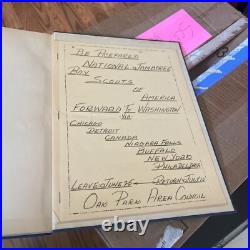 "Be Prepared"
National Jamboree
Boy Scouts
of
America
Forward To Washington
Via
Chicago
Detroit
Canada
Niagara Falls
Buffalo
New York
Philadelphia
Leave June 25 Return July
Oak Park Area Council